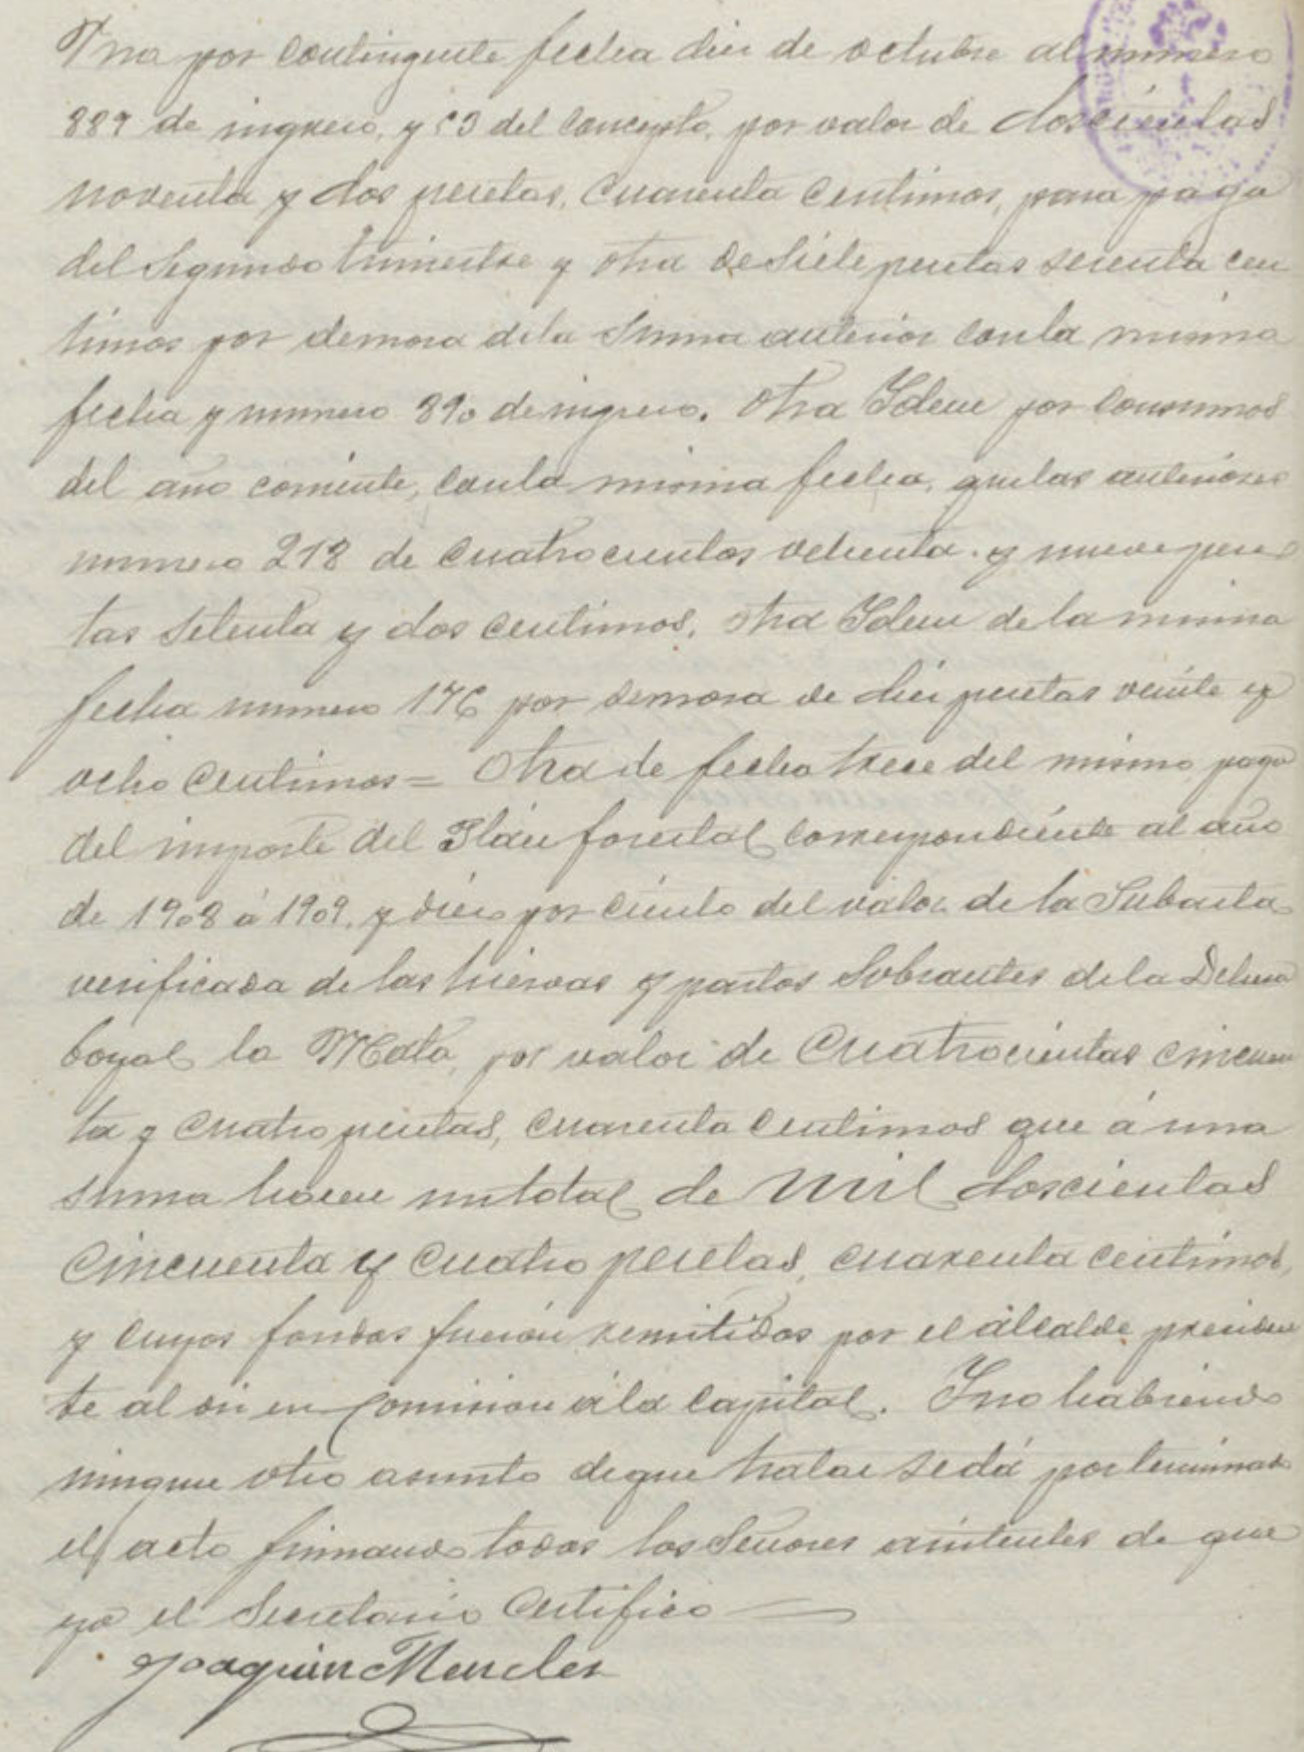 Una por contingente fecha diez de octubre al numero
889 de ingreso, y 53 del concepto, por valor de doscientas
noventa y dos pesetas, cuarenta centimos, para pago
del Segundo trimestre y otra de Siete pesetas sesenta cen
timos por demora dela Suma anterior conla misma
fecha y numero 890 de ingreso. Otra Idem por consumos
del año corriente, conla misma fecha, quelas anteriores
numero 218 de cuatrocientos ochenta y nueve pese
tas setenta y dos centimos, otra Idem de la misma
fecha numero 176 por demora de diez pesetas veinte y
ocho centimos = Otra de fecha trece del mismo pago
del importe del Plan forestal correspondiente al año
de 1908 á 1909, y diez por ciento del valor de la Subasta
verificada de las hiervas y pastos Sobrantes dela Dehesa
boyal la Mata, por valor de cuatrocientas cincuen
ta y cuatro pesetas, cuarenta centimos que á una
suma hacen untotal de mil doscientas
cincuenta y cuatro pesetas, cuarenta centimos,
y cuyos fondos fueron remitidos por el alcalde presiden
te al en comision ála capital. Yno habiendo
ningun otro asunto deque tratar sedá por terminado
el acto firmando todos los Señores asistentes de que
yo el Secretario Certifico
Joaquin Mendez